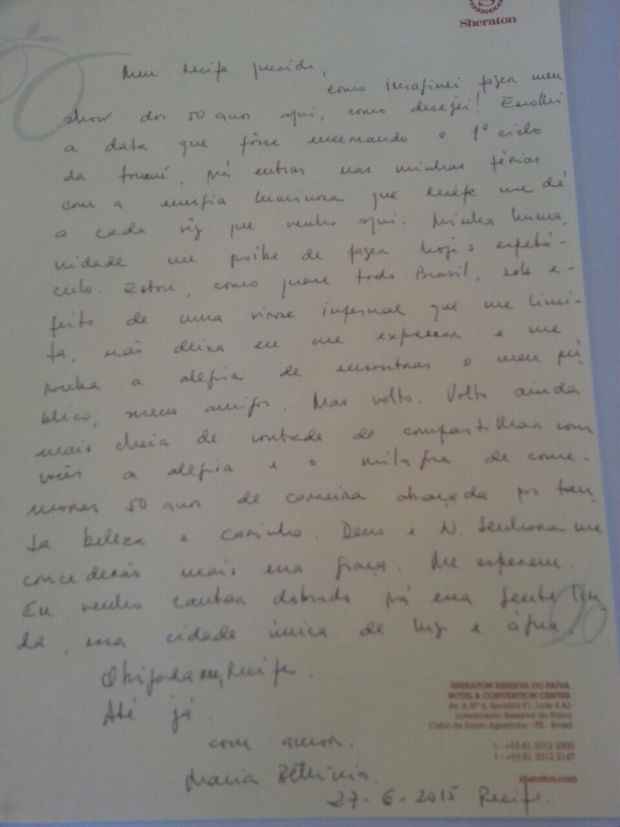 Sheraton
Meu Recife querido,
como imaginei fazer meu
show dos 50 anos aqui, como desejei! Escolhi
a data que fosse encerrando o 1º ciclo
da turnê, prá entrar nas minhas férias
com a energia luminosa que Recife me dá
a cada vez que venho aqui. Minha huma
nidade me proibe de fazer hoje o espetá-
culo. Estou, como quase todo Brasil, sob e-
feito de uma virose infernal que me limi-
ta, não deixa eu me expressar e me
rouba a alegria de encontrar o meu pú
blico, meus amigos. Mas volto. Volto ainda
mais cheia de vontade de compartilhar com
vocês a alegria e o milagre de come-
morar 50 anos de carreira abraçada por tan
ta beleza e carinho. Deus e N. Senhora me
concederão mais essa graça. Me esperem.
Eu venho cantar dobrado prá essa gente lin
da, essa cidade única de luz e água.
Obrigada, Recife.
Até já.
com amor.
Maria Bethânia.
27-6-2015 Recife.
SHERATON RESERVA DO PAIVA
HOTEL & CONVENTION CENTER
Cabo de Santo Agostinho - PE - Brasil
sheraton.com